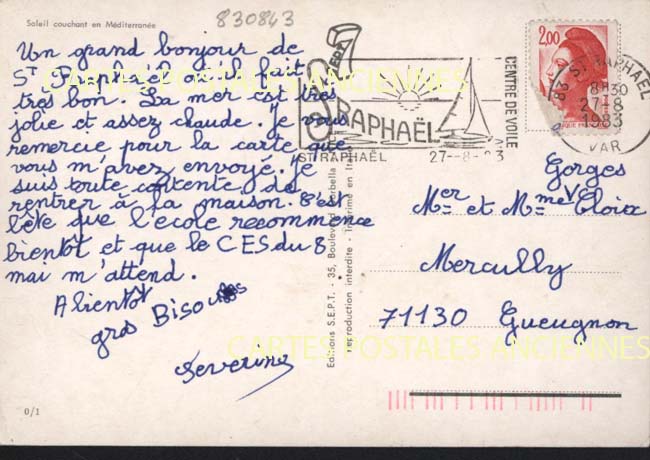 Soleil couchant en Méditerranée
830843
Un grand bonjour de
St Raphaël où il fait
tres bon. La mer est très
jolie et assez chaude. Je vous
remercie pour la carte que
vous m'avez envoyé. Je
suis toute contente de
rentrer à la maison. C'est
bête que l'école recommence
bientôt et que le CES du 8
mai m'attend.
A bientôt
gros Bisous
Severine
0/1
Editions S.E.P.T. - 35, Boulevard
reproduction interdite - Imprimé en
ST RAPHAËL
ST RAPHAËL
27-8-83
CENTRE DE VOILE
2,00
83 ST RAPHAEL
8H30
27-8
1983
VAR
Gorges
Mer et Mme V Eloix
Mercully
71130 Gueugnon
CARTES POSTALES ANCIENNES
CARTES POSTALES ANCIENNES